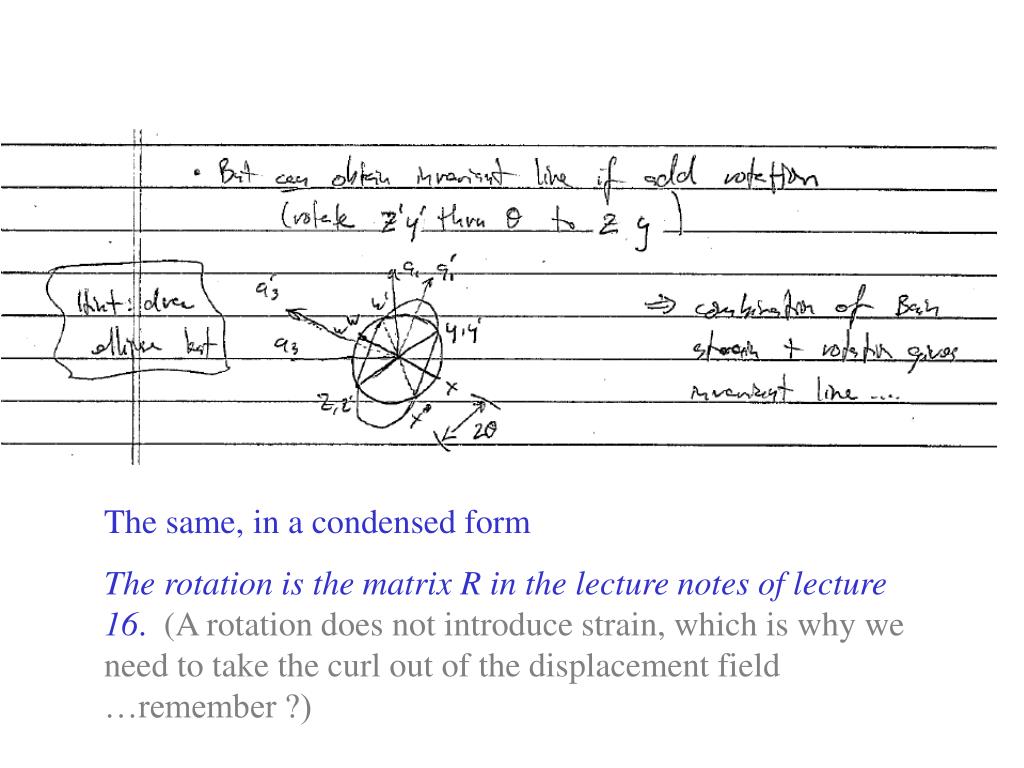 • But can obtain invariant line if add rotation
(rotate z'y' thru θ to z y)
Hint: draw
ellipse last
a3'
a3
a1 a1'
w'
w
y,y'
x
z,z'
x'
2θ
⇒ combination of Bain
strain + rotation gives
invariant line ....
The same, in a condensed form
The rotation is the matrix R in the lecture notes of lecture
16. (A rotation does not introduce strain, which is why we
need to take the curl out of the displacement field
…remember ?)